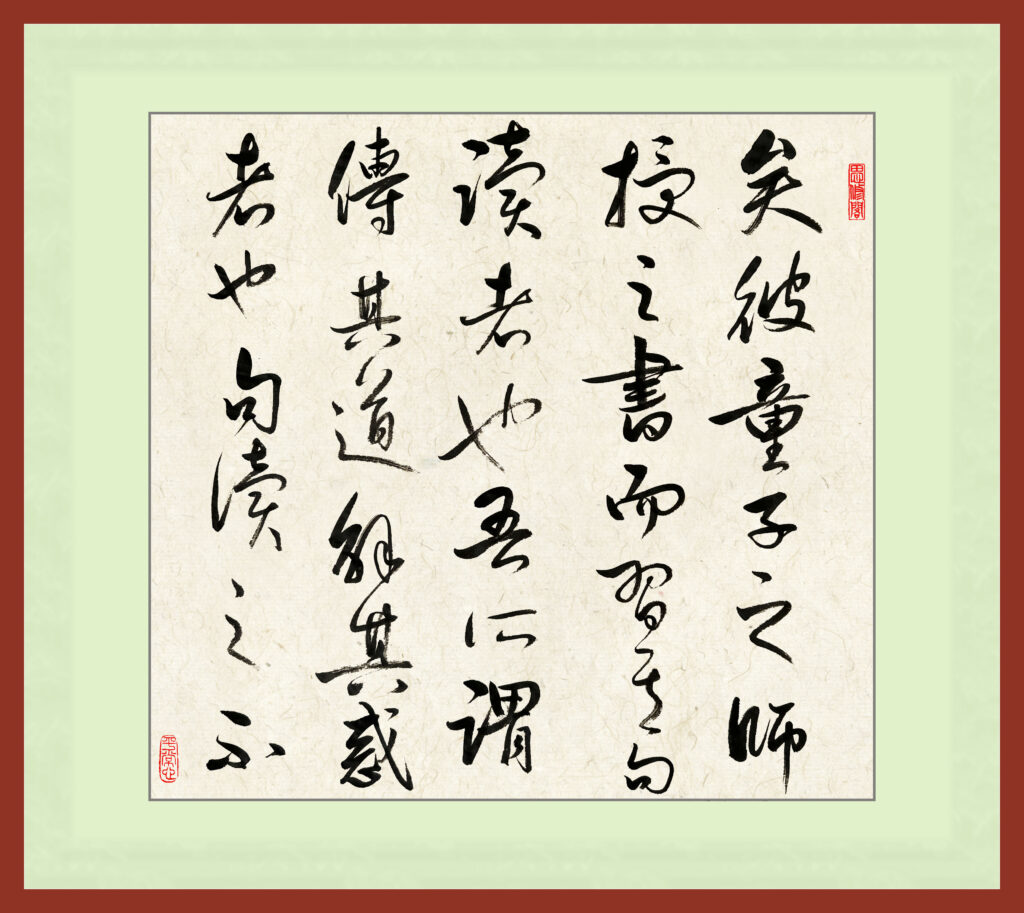 思修閣
矣彼童子之師
授之書而習其句
讀者也吾所謂
傳其道解其惑
者也句讀之不
平常心